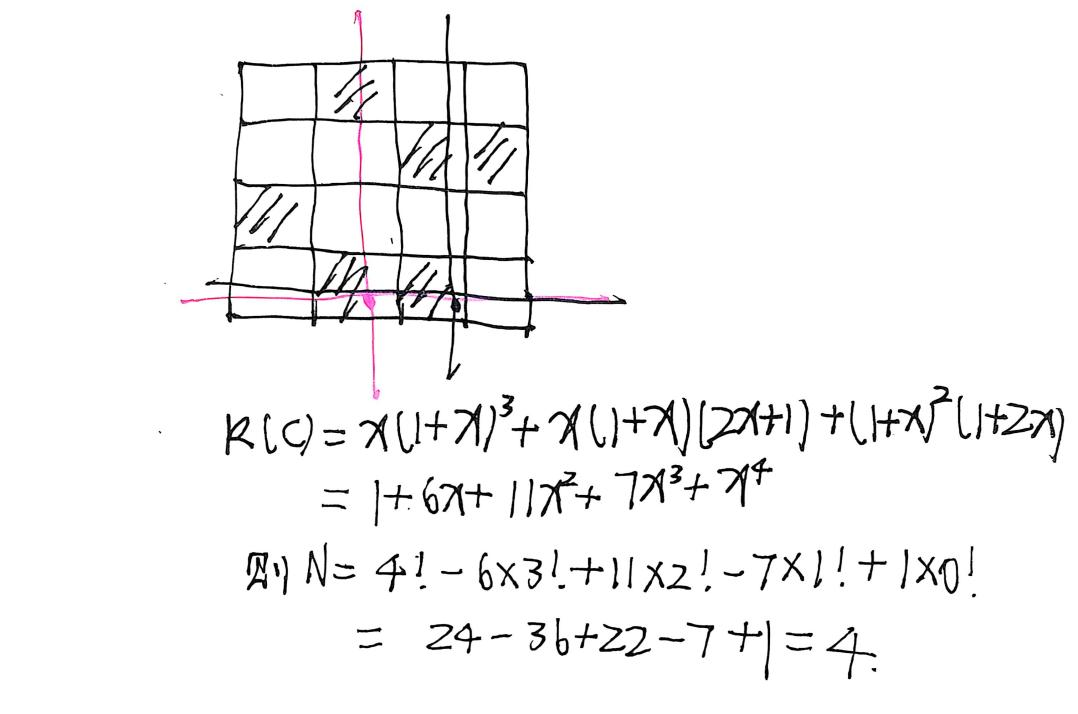 R(C) = x(1+x)³ + x(1+x)(2x+1) + (1+x)²(1+2x)
= 1+6x+11x²+7x³+x⁴
则 N = 4! - 6×3! + 11×2! - 7×1! + 1×0!
= 24-36+22-7+1 = 4.